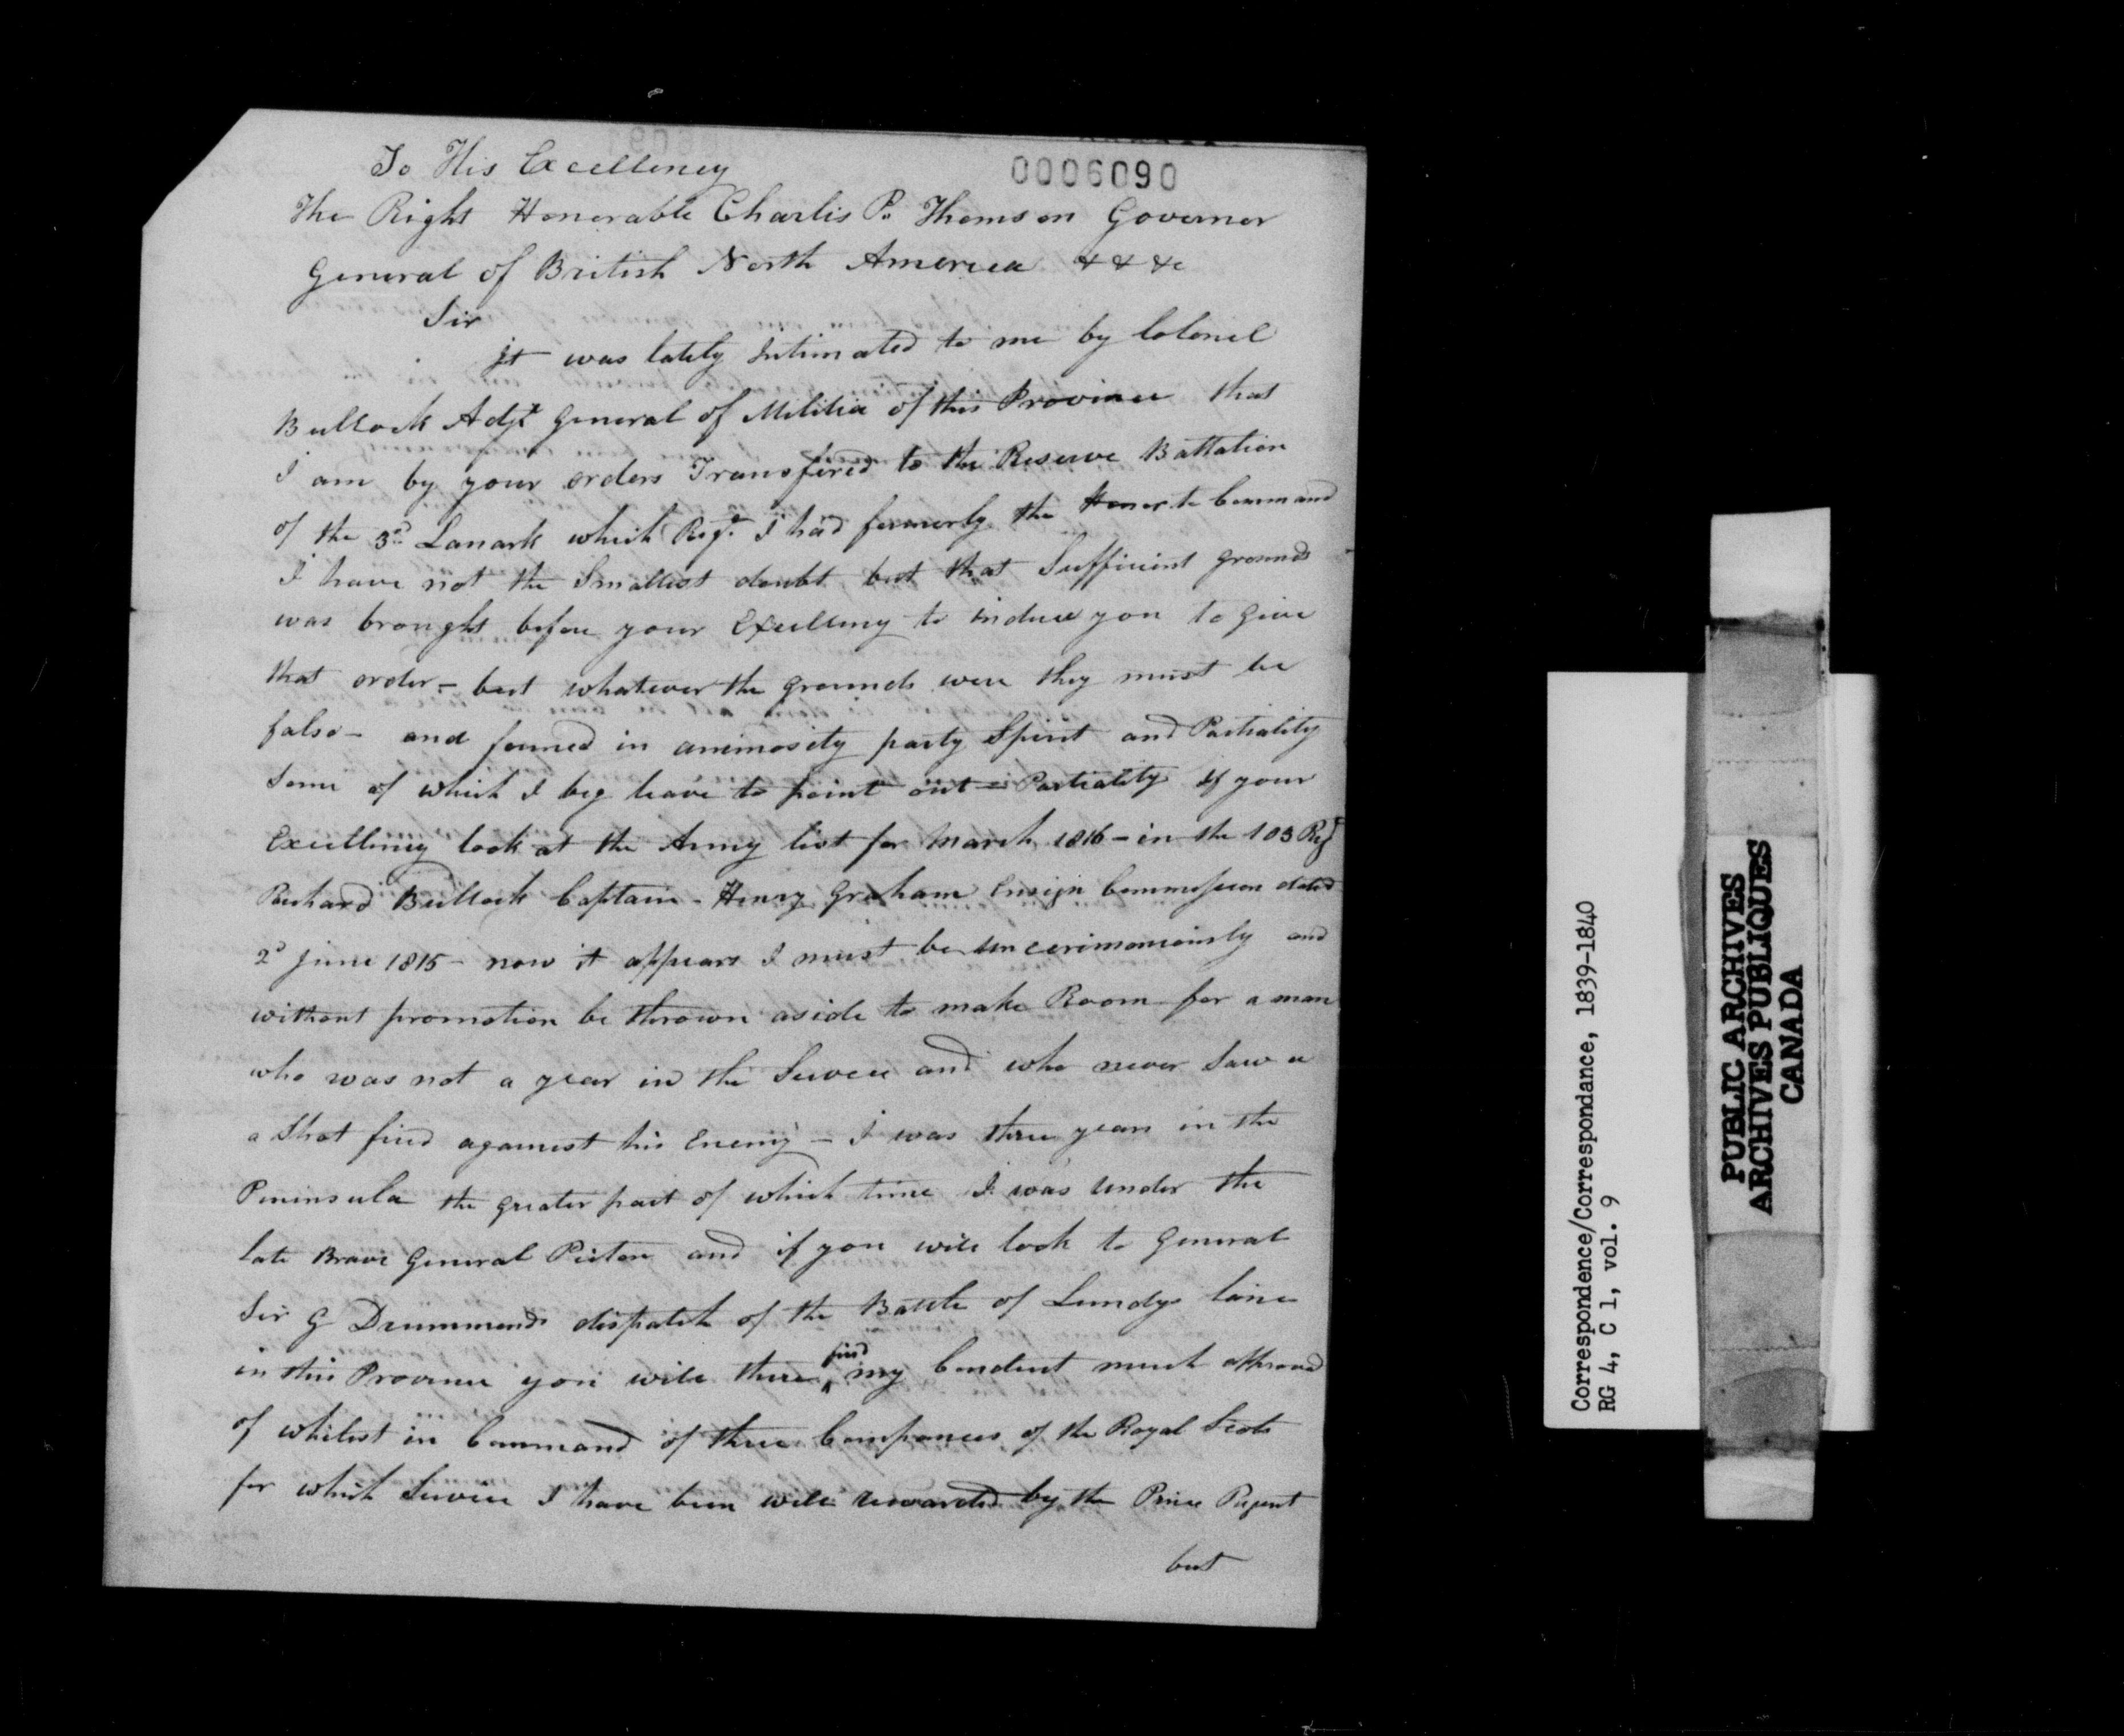 0006090
To His Excellency
The Right Honorable Charlis P. Thomson Governor
General of British North America & & &c
Sir
It was lately Intimated to me by Colonel
Bullock Adjt General of Militia of this Province that
I am by your orders Transfired to the Reserve Battalion
of the 3rd Lanark which Regt. I had formerly the Honor to Command
I have not the Smallest doubt but that Sufficient grounds
was brought before your Excellency to induce you to Give
that order - but whatever the grounds were they must be
false - and founed in animosity party Spirit and Partiality
Some of which I beg leave to point out = Partiality If your
Excellency look at the Army list for March 1816 - in the 103 Regt
Richard Bullock Captain - Henry Graham Ensign Commission dated
2d June 1815 - now it appears I must be uncerimoniously and
without promotion be thrown aside to make Room for a man
who was not a year in the Service and who never Saw a
a Shot fired against his Enemy - I was three years in the
Peninsula the greater part of which time I was under the
late Brave General Picton and if you will look to General
Sir G Drummonds dispatch of the Battle of Lundys lane
in this Province you will there find my Conduct much approved
of whilest in Command of three Companies of the Royal Scots
for which Service I have been well rewarded by the Prince Regent
but
Correspondence/Correspondance, 1839-1840
RG 4, C 1, vol. 9
PUBLIC ARCHIVES
ARCHIVES PUBLIQUES
CANADA